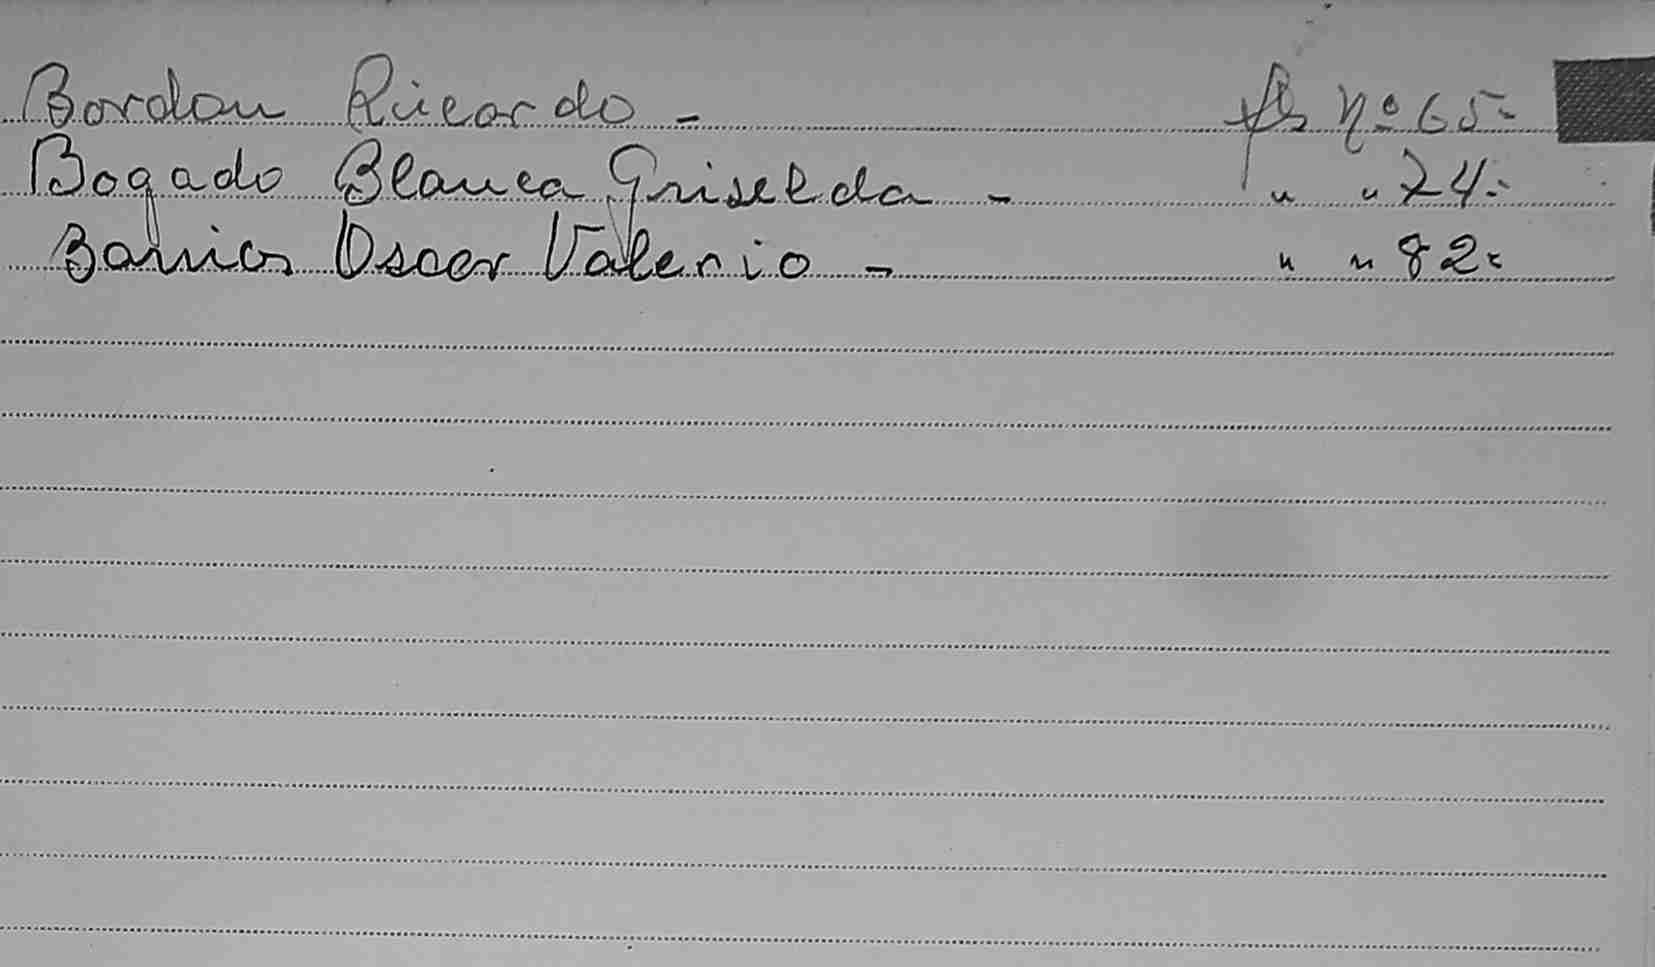 Bordon Ricardo - fs nº 65-
Bogado Blanca Griselda - " " 74-
Barrios Oscar Valerio - " " 82-